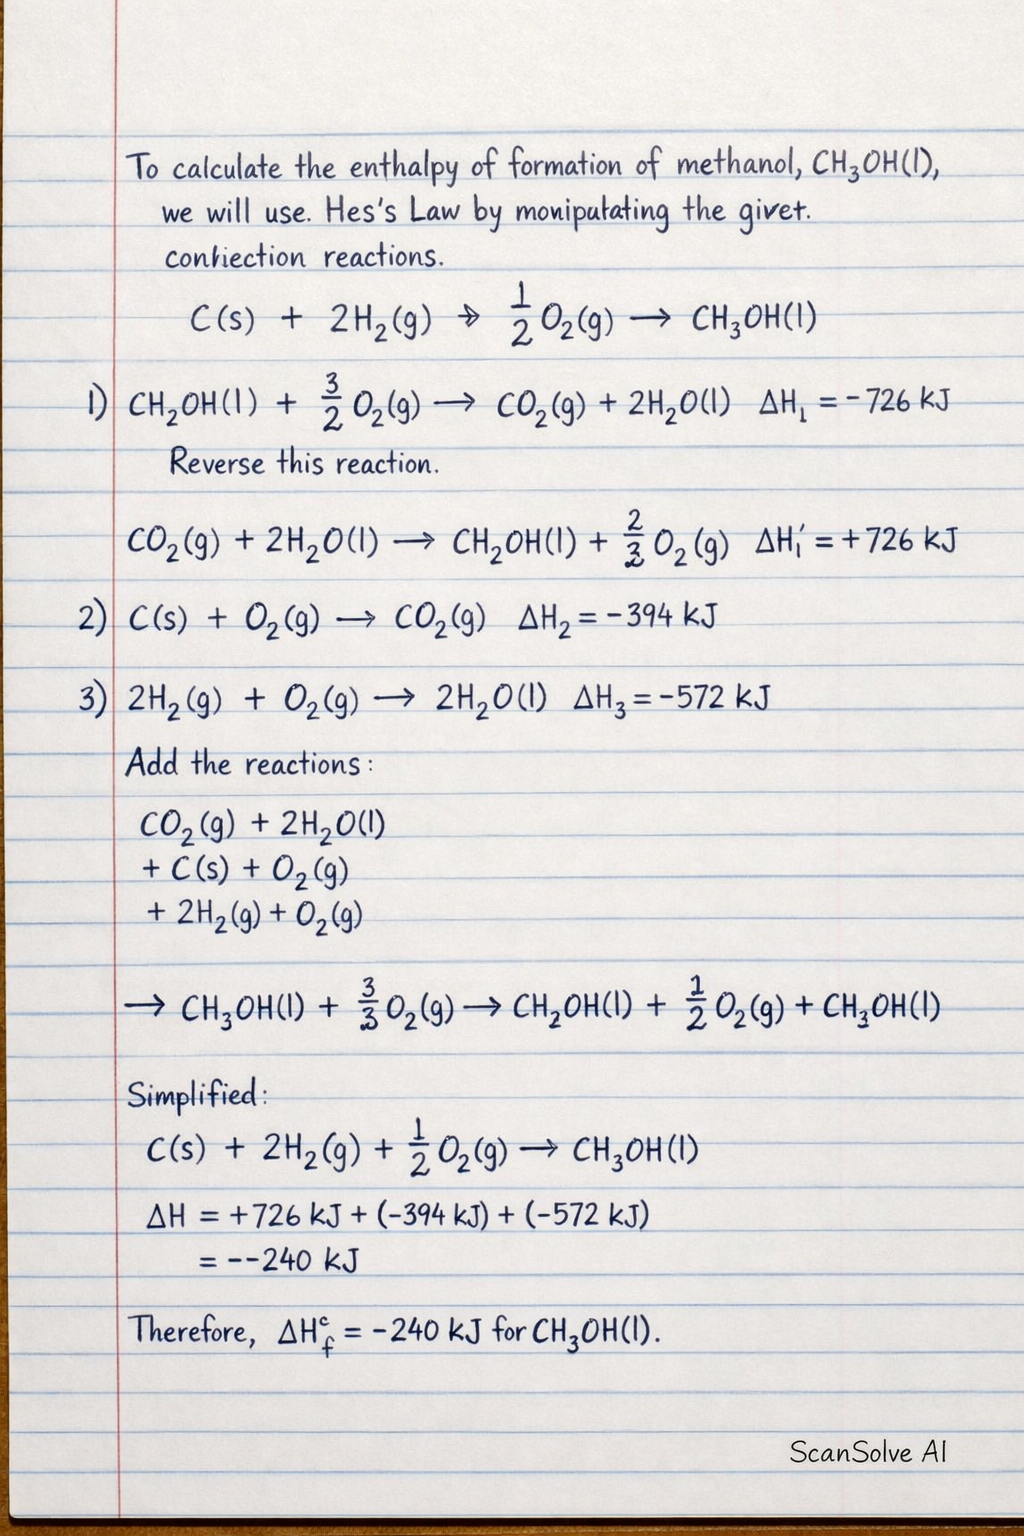 To calculate the enthalpy of formation of methanol, CH₃OH(l),
we will use. Hes's Law by monipulating the givet.
conhiection reactions.
C(s) + 2H₂(g) → ½ O₂(g) → CH₃OH(l)
1) CH₂OH(l) + 3/2 O₂(g) → CO₂(g) + 2H₂O(l) ΔH₁ = -726 kJ
Reverse this reaction.
CO₂(g) + 2H₂O(l) → CH₂OH(l) + 2/3 O₂(g) ΔH₁′ = +726 kJ
2) C(s) + O₂(g) → CO₂(g) ΔH₂ = -394 kJ
3) 2H₂(g) + O₂(g) → 2H₂O(l) ΔH₃ = -572 kJ
Add the reactions:
CO₂(g) + 2H₂O(l)
+ C(s) + O₂(g)
+ 2H₂(g) + O₂(g)
→ CH₃OH(l) + 3/3 O₂(g) → CH₂OH(l) + ½ O₂(g) + CH₃OH(l)
Simplified:
C(s) + 2H₂(g) + ½ O₂(g) → CH₃OH(l)
ΔH = +726 kJ + (-394 kJ) + (-572 kJ)
= --240 kJ
Therefore, ΔH°f = -240 kJ for CH₃OH(l).
ScanSolve AI